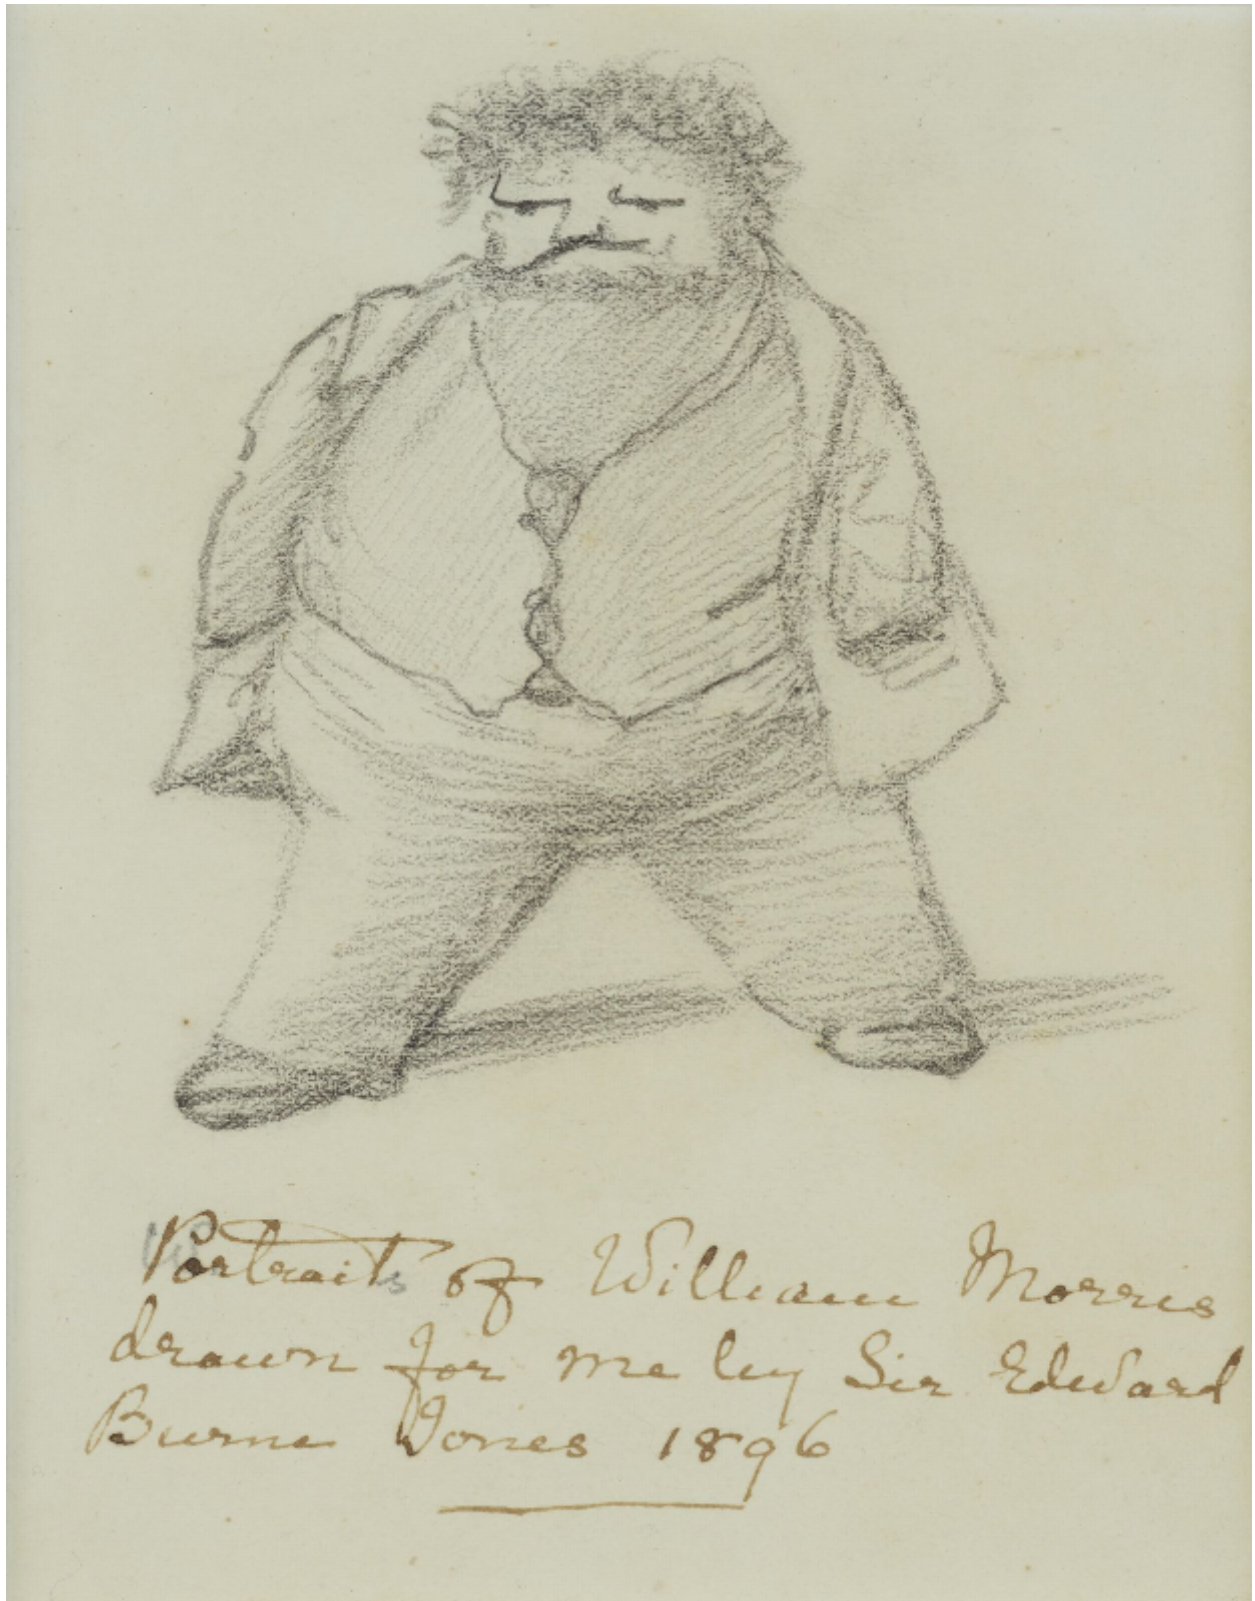 Portraits of William Morris
drawn for me by Sir Edward
Burne Jones 1896